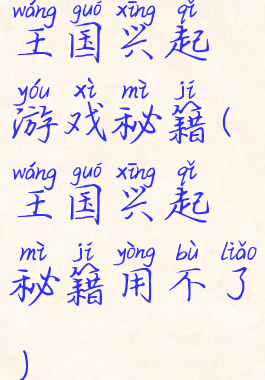 wáng guó xīng qǐ
王国兴起
yóu xì mì jí
游戏秘籍(
wáng guó xīng qǐ
王国兴起
mì jí yòng bù liǎo
秘籍用不了
)